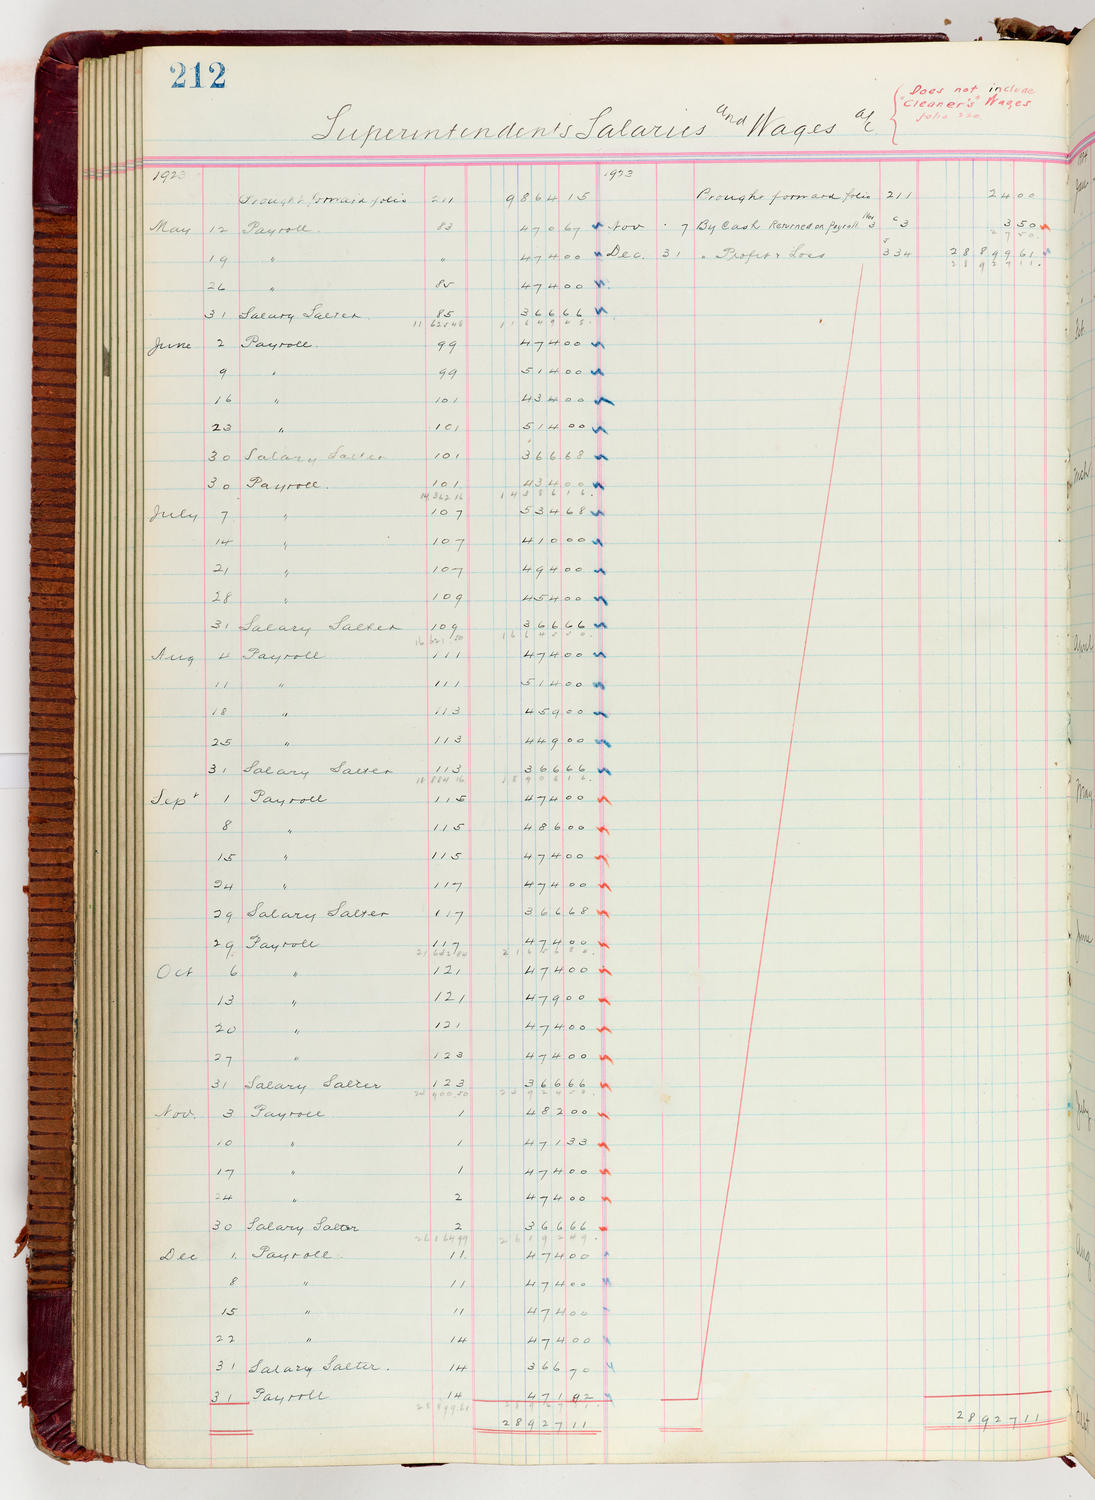 212
Superintenden's Salaries and Wages a/c
Does not include
"Cleaner's" Wages
folio 220
1923 1923
Brought forward folio 211 9864 15 Brought forward folio 211 24 00
May 12 Payroll 83 470 67 Nov 7 By Cash Returned on payroll 3 50
27 50
19 " " 474 00 Dec. 31 " Profit & Loss 334 28899 61
28927 11
26 " 85 474 00
31 Salary Salter 85 366 66
11 625 48 11649 48
June 2 Payroll. 99 474 00
9 " 99 514 00
16 " 101 434 00
23 " 101 514 00
30 Salary Salter 101 366 68
30 Payroll. 101 434 00
14 362 16 14386 16
July 7 " 107 534 68
14 " 107 410 00
21 " 107 494 00
28 " 109 454 00
31 Salary Salter 109 366 66
16 621 50 16645 50
Aug 4 Payroll 111 474 00
11 " 111 514 00
18 " 113 459 00
25 " 113 449 00
31 Salary Salter 113 366 66
18 884 16 18908 16
Sept 1 Payroll 115 474 00
8 " 115 486 00
15 " 115 474 00
24 " 117 474 00
29 Salary Salter 117 366 68
29 Payroll 117 474 00
21 632 84 21656 80
Oct 6 " 121 474 00
13 " 121 479 00
20 " 121 474 00
27 " 123 474 00
31 Salary Salter 123 366 66
23 900 50 23924 50
Nov. 3 Payroll 1 482 00
10 " 1 471 33
17 " 1 474 00
24 " 2 474 00
30 Salary Salter 2 366 66
26 164 99 26192 49
Dec 1. Payroll 11. 474 00
8 " 11 474 00
15 " 11 474 00
22 " 14 474 00
31 Salary Salter. 14 366 70
31 Payroll 14 471 92
28 899 61 28927 11
28927 11 28927 11